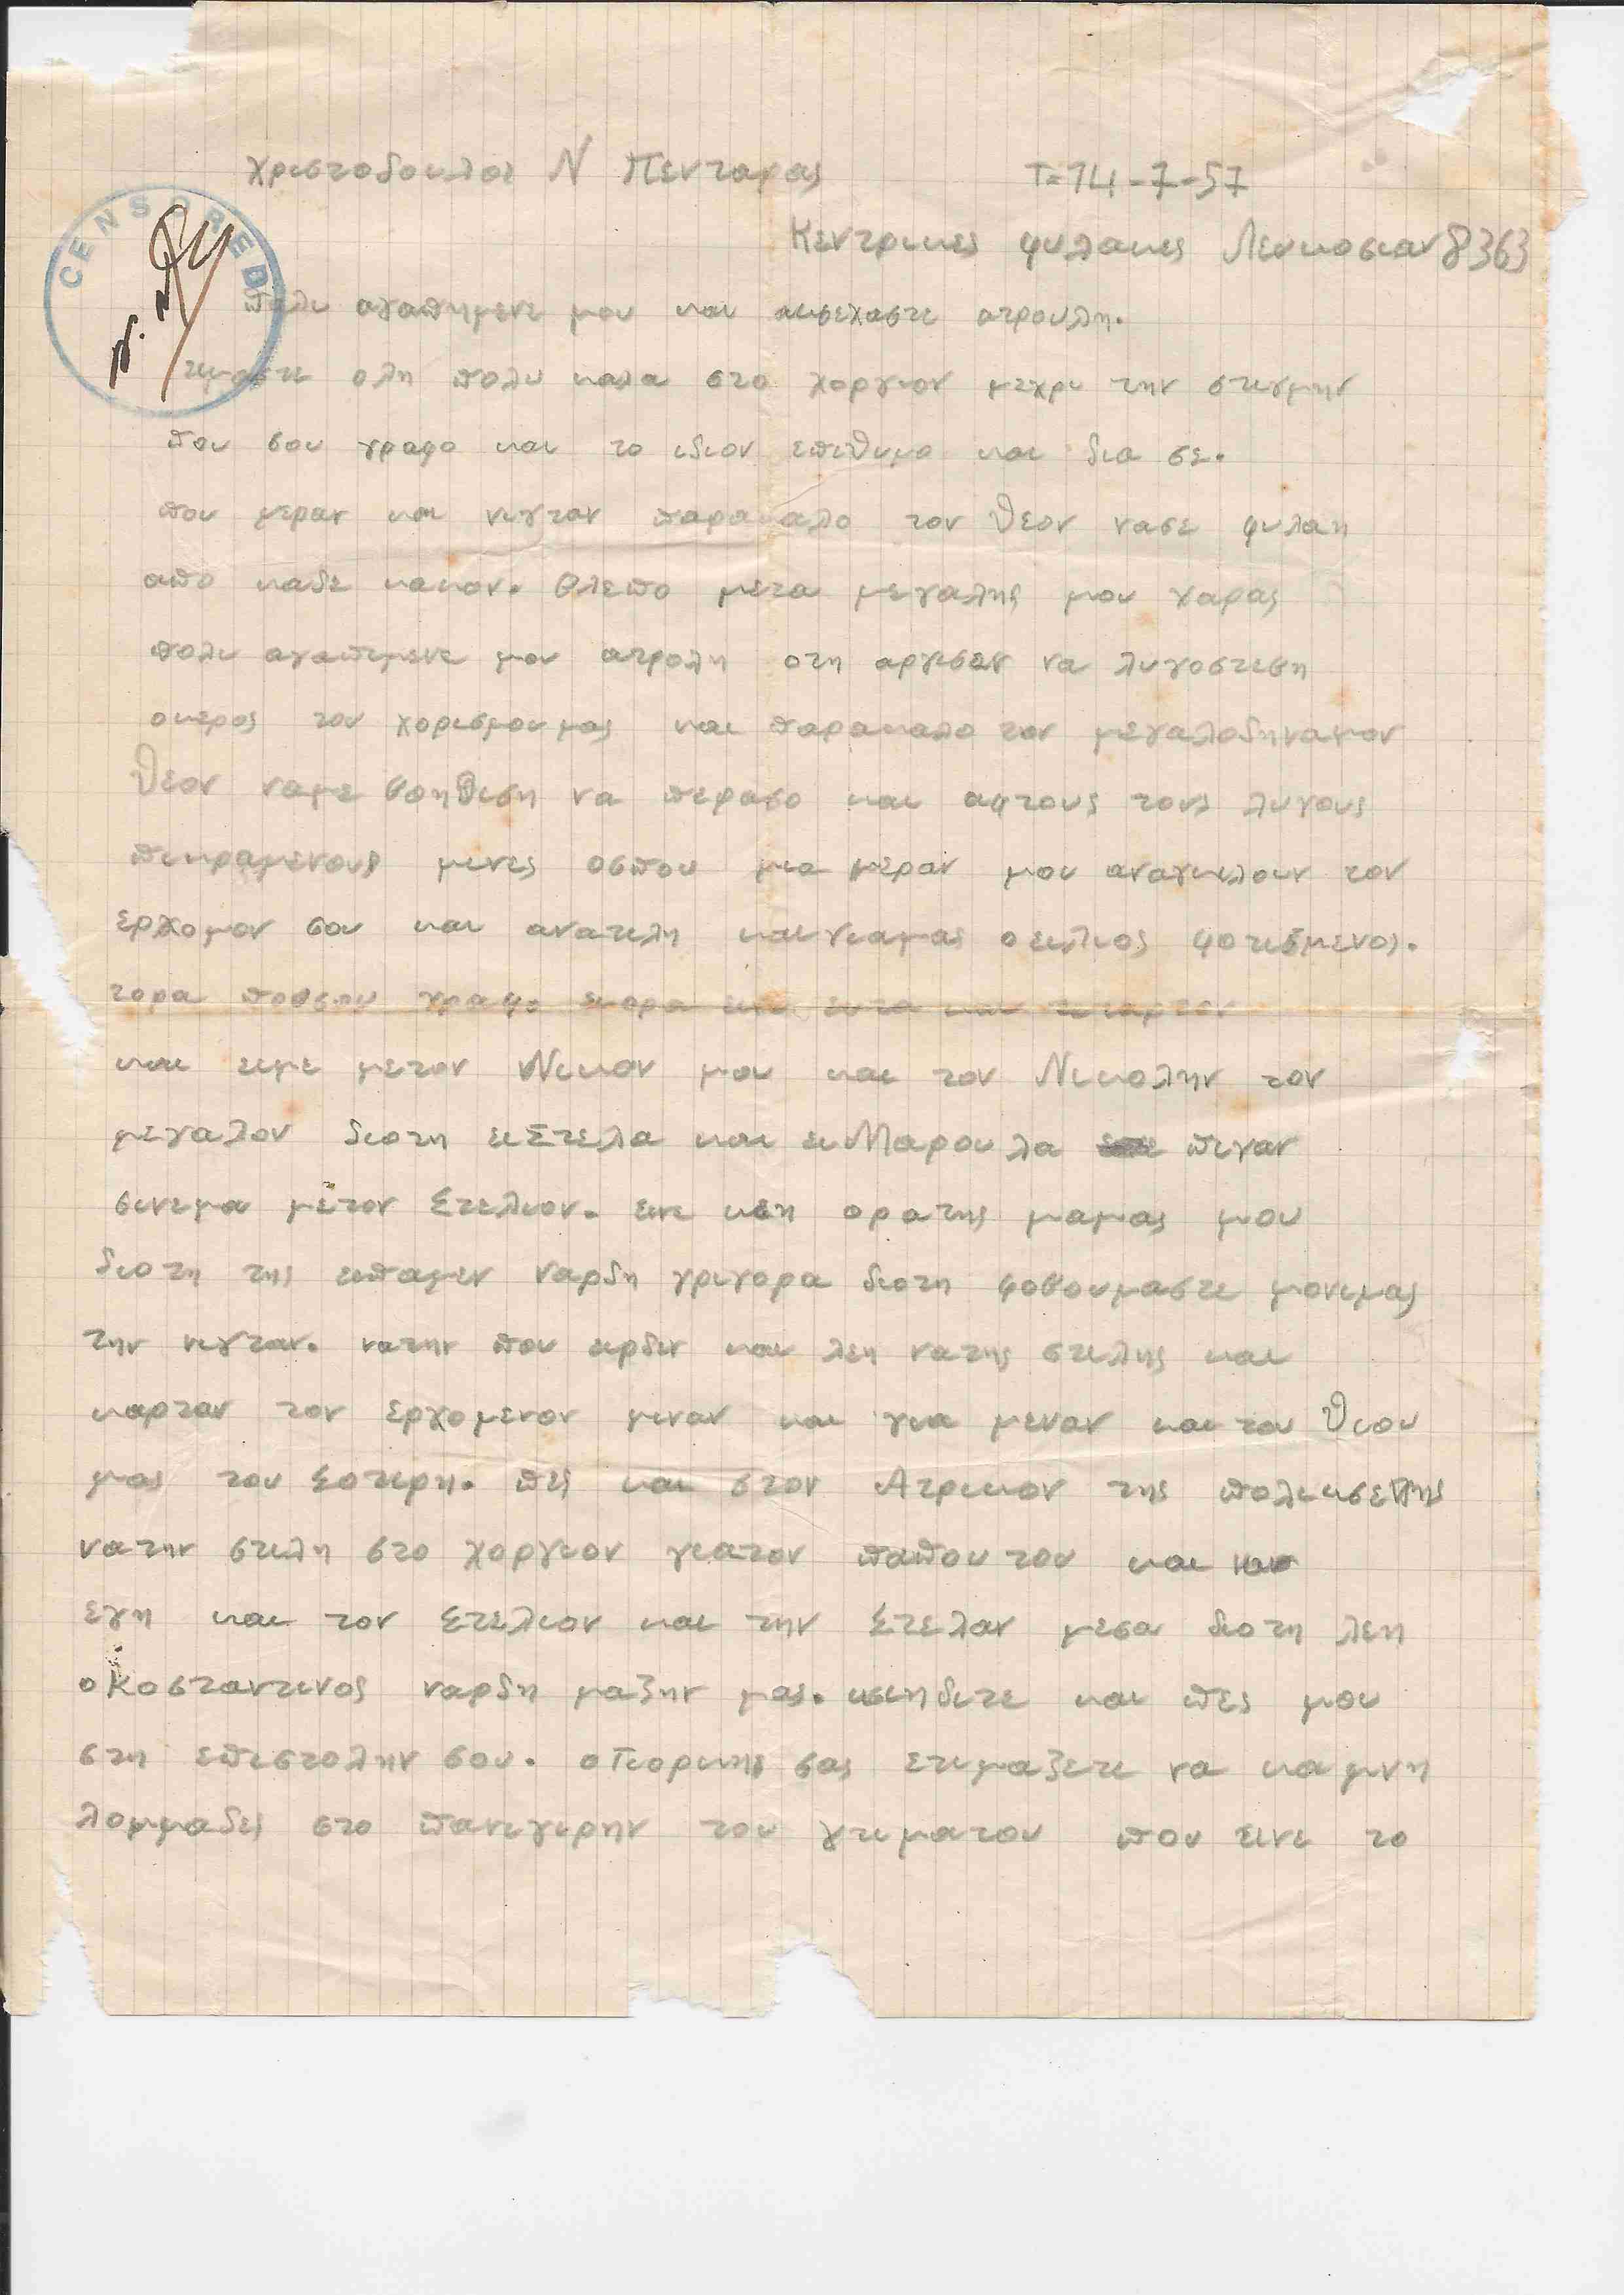 Χριστοδουλος Ν Πενταρας Τ=14-7-57
Κεντρικες φυλακες Λευκοσιαν 8363
CENSORED
πολυ αγαπημενε μου και ατρουλη.
ειμαστε ολη πολυ καλα στο χοργιον μεχρι την στιγμην
που σου γραφο και το ιδιον επιθυμο και δια σε.
που μεραν και νιχταν παρακαλο τον Θεον νασε φυλαη
απο καθε κακον. βλεπο μετα μεγαλης μου χαρας
πολυ αγαπιμενε μου ατρολη οτη αργισαν να λυγοστεβη
οκερος του χορισμου μας και παρακαλο τον μεγαλοδηναμον
Θεον ναμε βοηθιση να περασο και αφτους τους λυγους
πικραμενους μινες οσπου μια μεραν μου αναγκιλουν τον
ερχομον σου και ανατιλη και γιαμας ο ειλιος φοτισμενος.
τορα ποσσου γραφο ειορα ινε
και ειμε μετον Νικον μου και τον Νικολην τον
μεγαλον διοτη ει Στελα και ει Μαρουλα πιγαν
σινεμα μετον Στελιον. εινε κεη ορα της μαμας μου
διοτη της ειπαμεν ναρδη γριγορα διοτη φοβουμαστε μονιμας
την νιχταν. νατην που ειρδεν και λεη νατης στιλης και
καρταν τον ερχομενον μιναν και για μεναν και του Θιου
μας του Σοτερη. πες και στον Ατρικον της
νατην στιλη στο χοργιον γιατον παπου του και να
εχη και τον Στελιον και την Στελαν μεσα διοτη λεη
ο Κοσταντινος ναρδη μαζην μας. και πες μου
στη επιστολην σου. ο Γιορκης σας ετιμαζετε να καμνη
λομμαδες στο πανιγιρην του χτιματου που εινε το